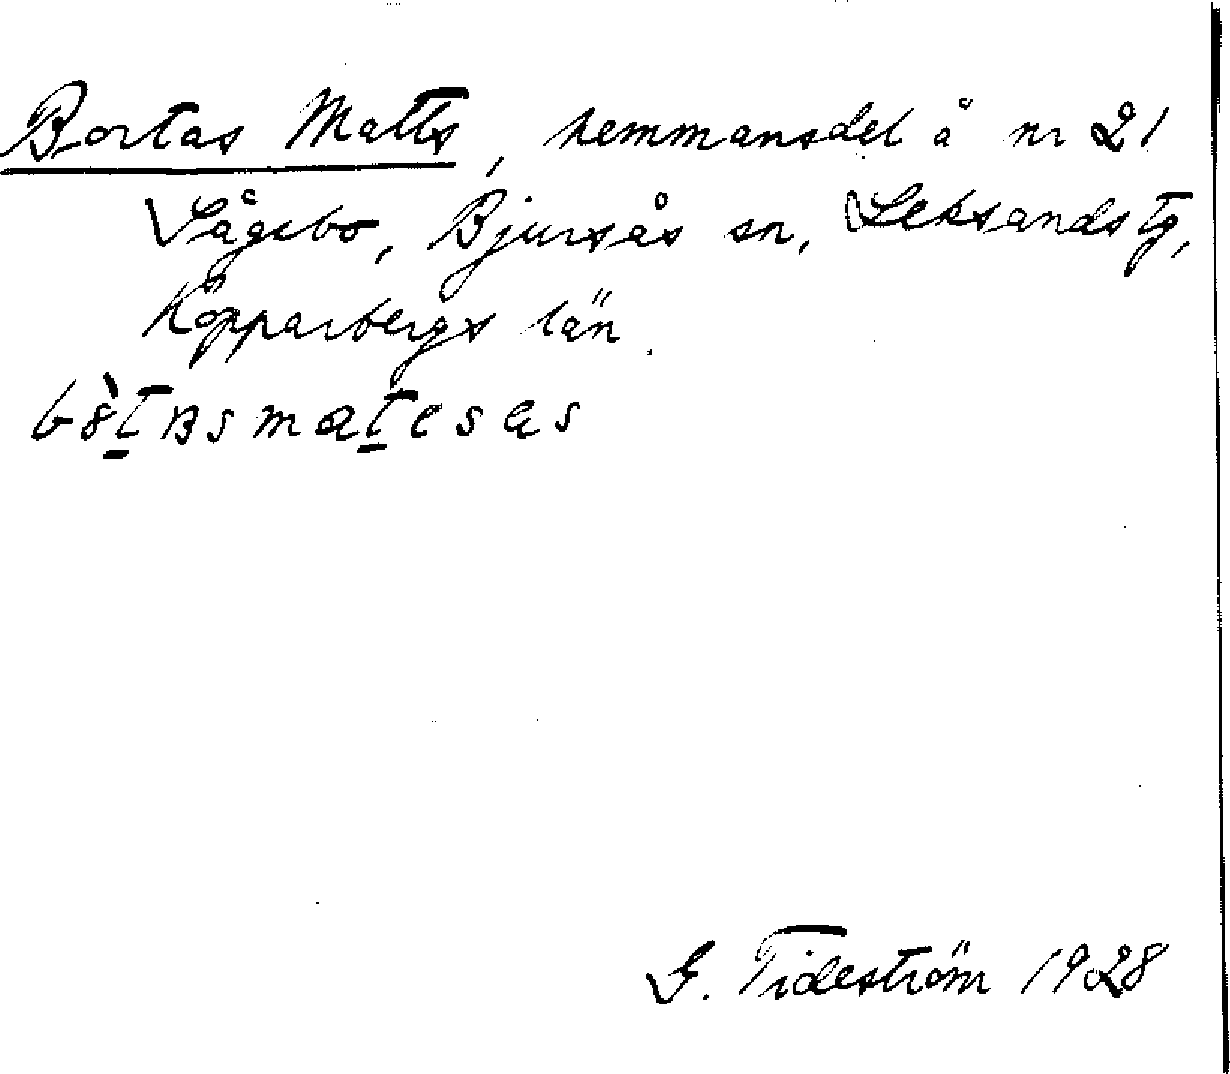 Bortas Matts, hemmansdel å nr 21
Sågebo, Bjursås sn, Leksands tg,
Kopparbergs län.
G. Tideström 1928